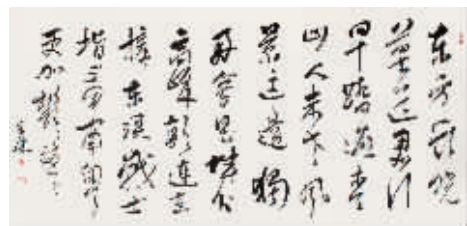 东方欲晓
莫道君行
早踏遍青
山人未老风
景这边独
好会昌城外
高峰颠连直
接东溟战士
指看南粤
更加郁郁葱葱